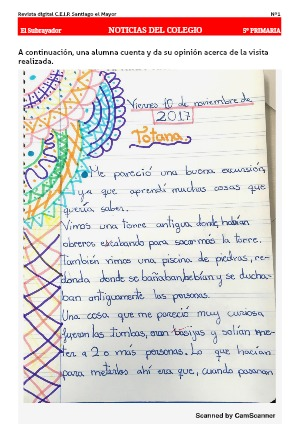 Revista digital C.E.I.P. Santiago el Mayor Nº1
El Subrayador NOTICIAS DEL COLEGIO 5º PRIMARIA
A continuación, una alumna cuenta y da su opinión acerca de la visita
realizada.
Viernes 10 de noviembre de
2017
Tótana
Me pareció una buena excursión,
ya que aprendí muchas cosas que
quería saber.
Vimos una torre antigua donde habían
obreros escabando para sacar más la torre.
también vimos una piscina de piedras, re-
donda donde se bañaban, bebían y se ducha-
ban antiguamente las personas.
Una cosa que me pareció muy curiosa
fueron las tumbas, eran basijas y solían me-
ter a 2 o más personas. Lo que hacían
para meterlos ahí era que, cuando pasaran
Scanned by CamScanner